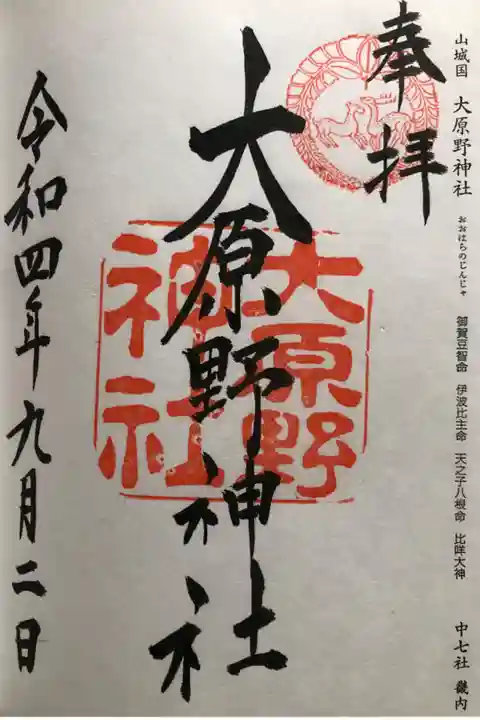 山城国 大原野神社 おおはらのじんじゃ 御賀豆智命 伊波比主命 天之子八根命 比咩大神 中七社 畿内
奉拝
大原野神社
大原野
神社
令和四年九月二日